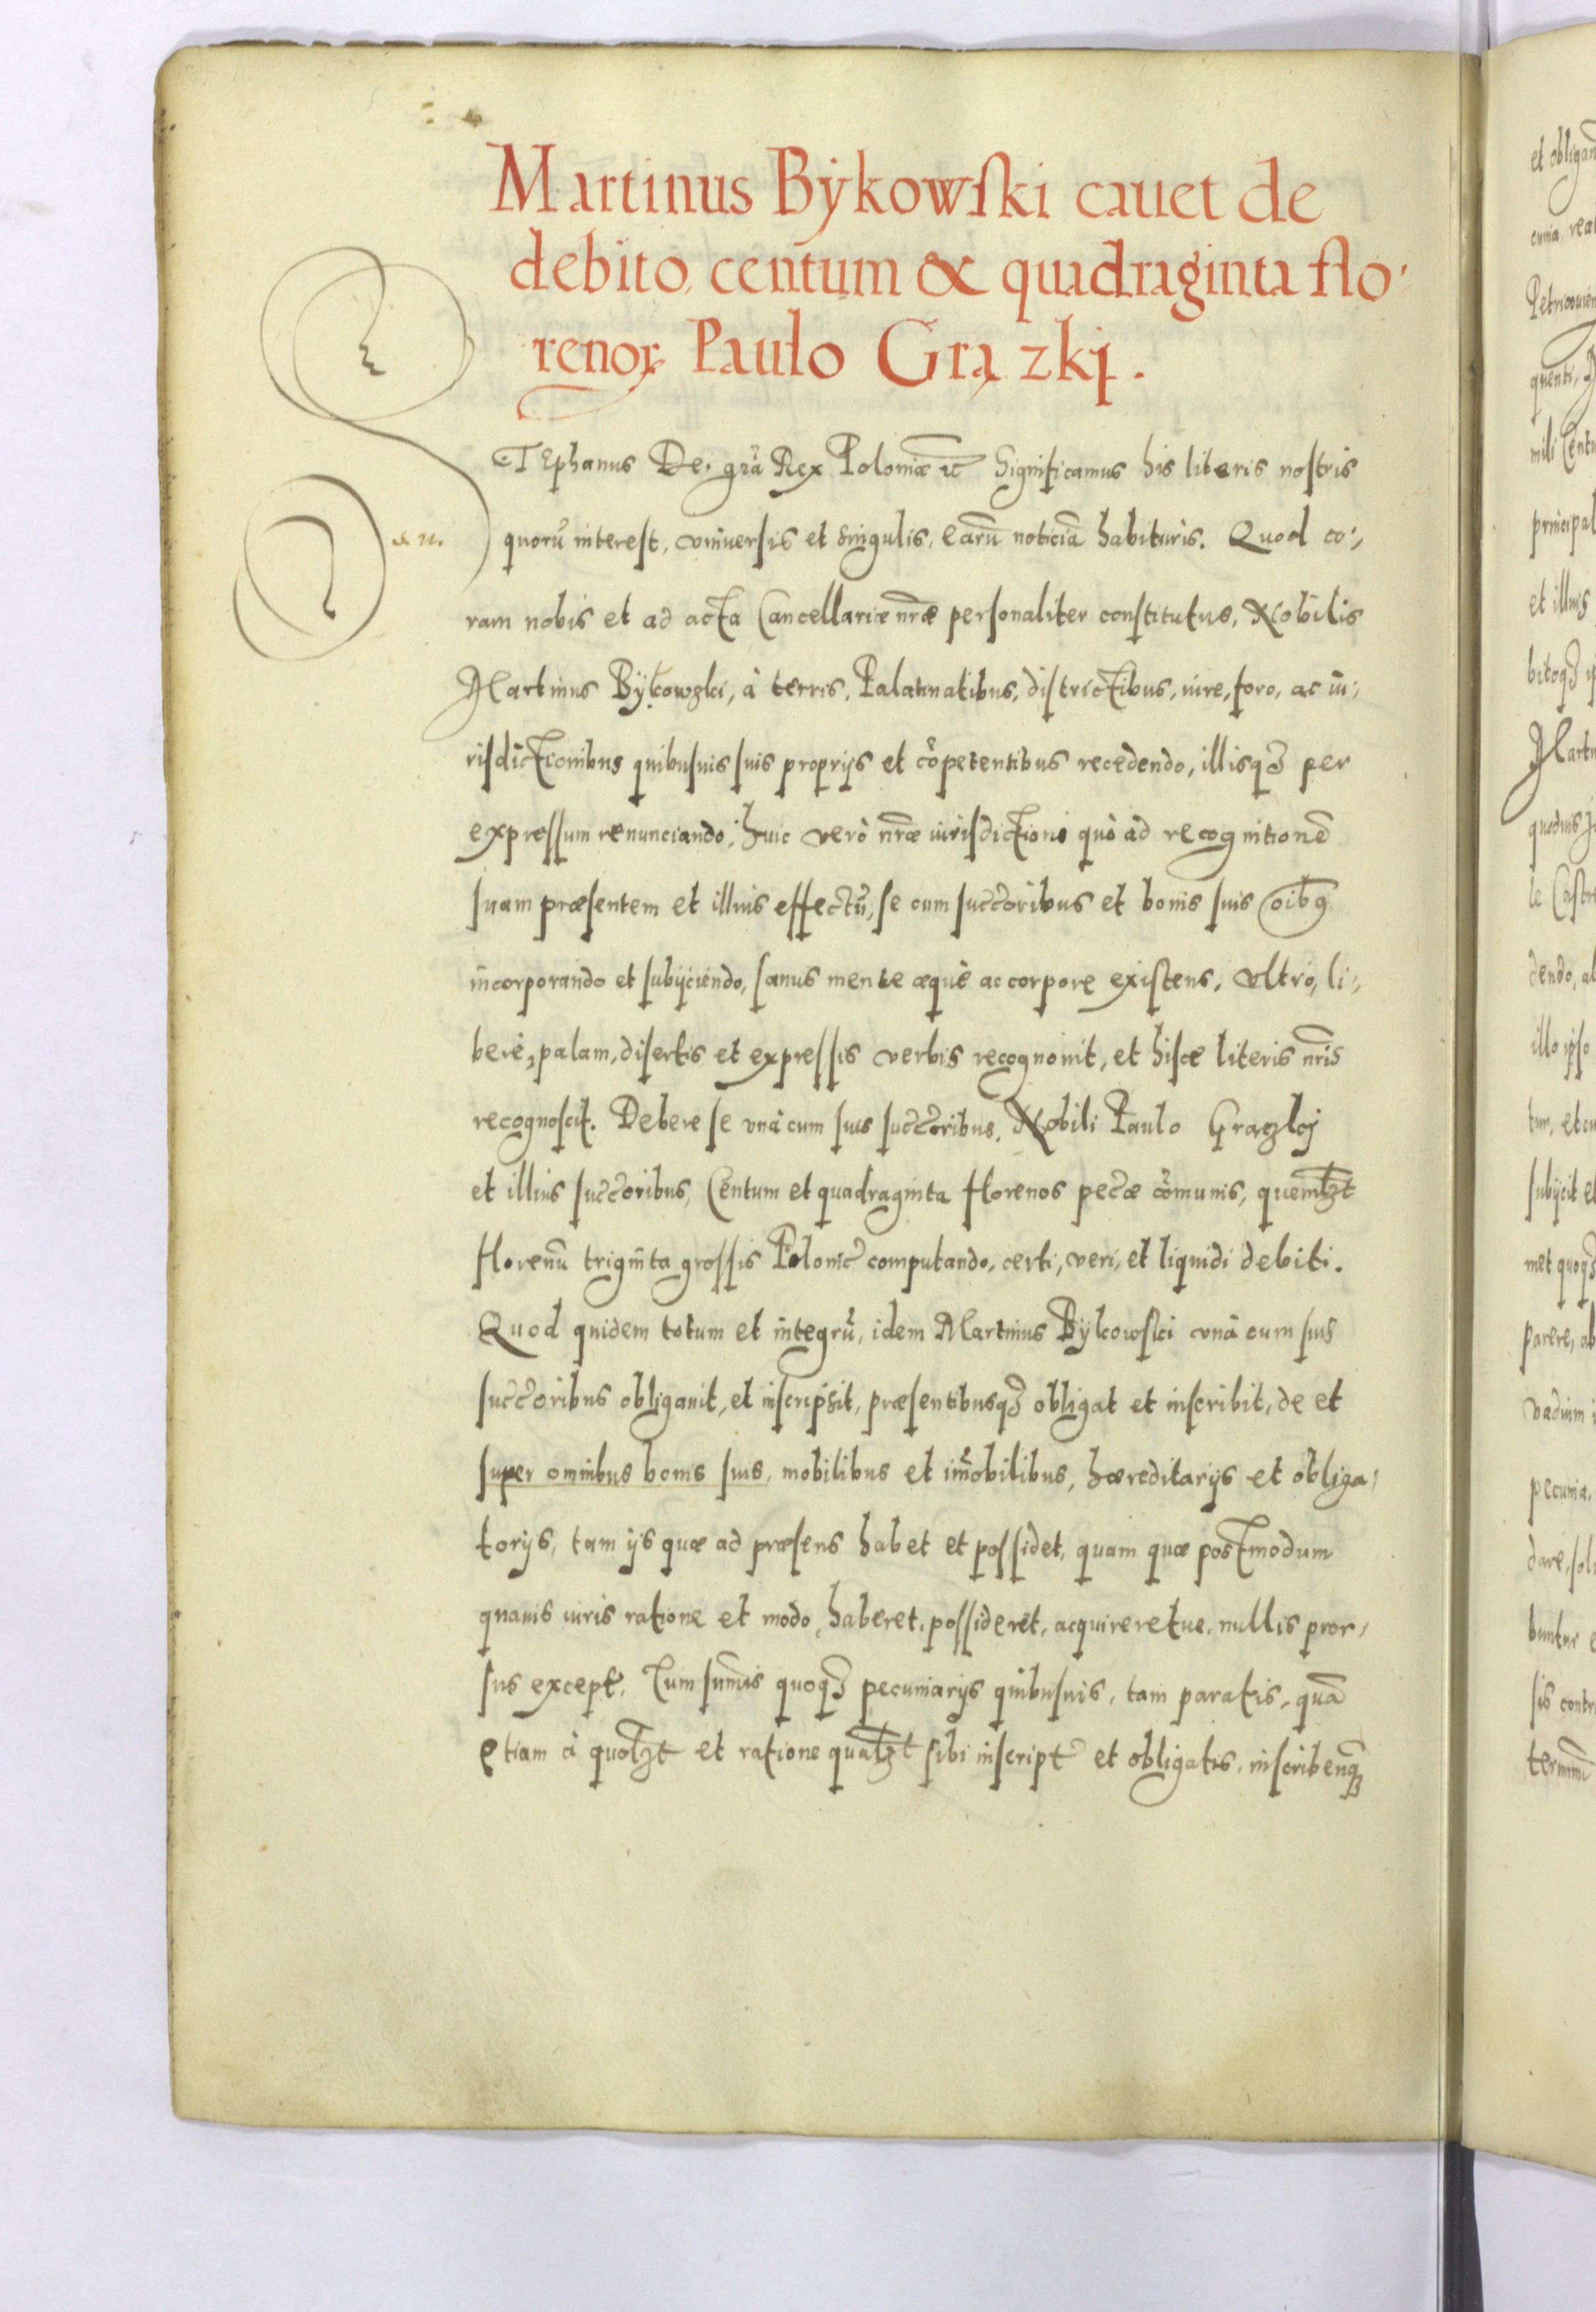 Martinus Bÿkowſki cauet de
debito centum & quadraginta flo-
renoꝝ Paulo Grązkị.
STEphanus Dei grã Rex Poloniæ ꝛc Significamus his literis nostris
quorũ interest, vniuersis et singulis, earũ noticiã habituris. Quod co-
s. n.
ram nobis et ad acta Cancellariæ nr̃æ personaliter constitutus, Nobilis
Martinus Bÿkowzki, à terris, Palatinatibus, districtibus, iure, foro, ac iu-
risdictionibus quibusuis suis proprijs et cõpetentibus recedendo, illisqꝫ per
expressum renunciando, huic verò nr̃æ iurisdictioni quò ad recognitionẽ
suam præsentem et illius effectũ, se cum succ̃oribus et bonis suis oĩbꝰ
incorporando et subijciendo, sanus mente æquè ac corpore existens, vltrò, li-
berè, palam, disertis et expressis verbis recognouit, et hisce literis nr̃is
recognoscit. Debere se vnà cum suis succ̃oribus, Nobili Paulo Grązkj
et illius succ̃oribus, Centum et quadraginta florenos pec̃æ cõmunis, quemlꝫt
florenũ triginta grossis Polonic̃ computando, certi, veri, et liquidi debiti.
Quod quidem totum et integrũ, idem Martinus Bÿkowski vnà cum suis
succ̃oribus obligauit, et inscripsit, præsentibusqꝫ obligat et inscribit, de et
super omnibus bonis suis, mobilibus et im̃obilibus, hæreditarijs et obliga-
torijs, tam ijs quæ ad præsens habet et possidet, quam quæ postmodum
quauis iuris ratione et modo, haberet, possideret, acquireretue, nullis pror-
sus except̃. Tum sum̃is quoqꝫ pecuniarijs quibusuis, tam paratis, quã
etiam à quolꝫt et ratione qualꝫt sibi inscript̃ et obligatis, inscribenqꝫ
et obligan
cunia rea
Petricouien
quenti,
mili Centu
principal
et illius
bitoqꝫ
Martin
quoduis
le Castr
dendo, al
illo ipso
tur, et cu
subijcit et
met quoqꝫ
parere, ab
vadium
pecunia,
dare, sol
buntur
sis contr
terminũ